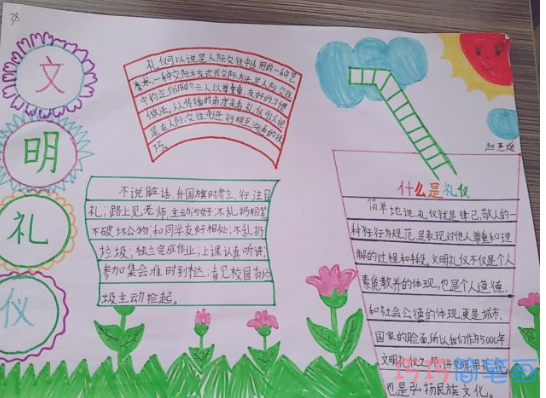 38
文
明
礼
仪
礼仪可以说是人际交往中适用的一种艺
一种交际方式或交际方法是人际交往
中约定俗成的示人以尊重,友好的习惯
做法。从传播的角度来看,礼仪可以说
是在人际交往中进行相互沟通的技
巧。
不说脏话,升国旗时肃立,行注目
礼;路上见老师,主动问好;不乱扔粉笔
不破坏公物;和同学友好相处;不乱扔
垃圾;独立完成作业;上课认真听讲;
参加集会准时到达;看见校园有垃
圾主动捡起。
什么是礼仪
简单地说,礼仪就是律己、敬人的一
种行为规范,是表现对他人尊重和理
解的过程和手段。文明礼仪不仅是个人
素质、教养的体现,也是个人道德
和社会公德的体现。更是城市、
国家的脸面。所以我们作为5000年
文明礼仪之邦,讲文明用礼仪,
也是弘扬民族文化。
巧巧简笔画